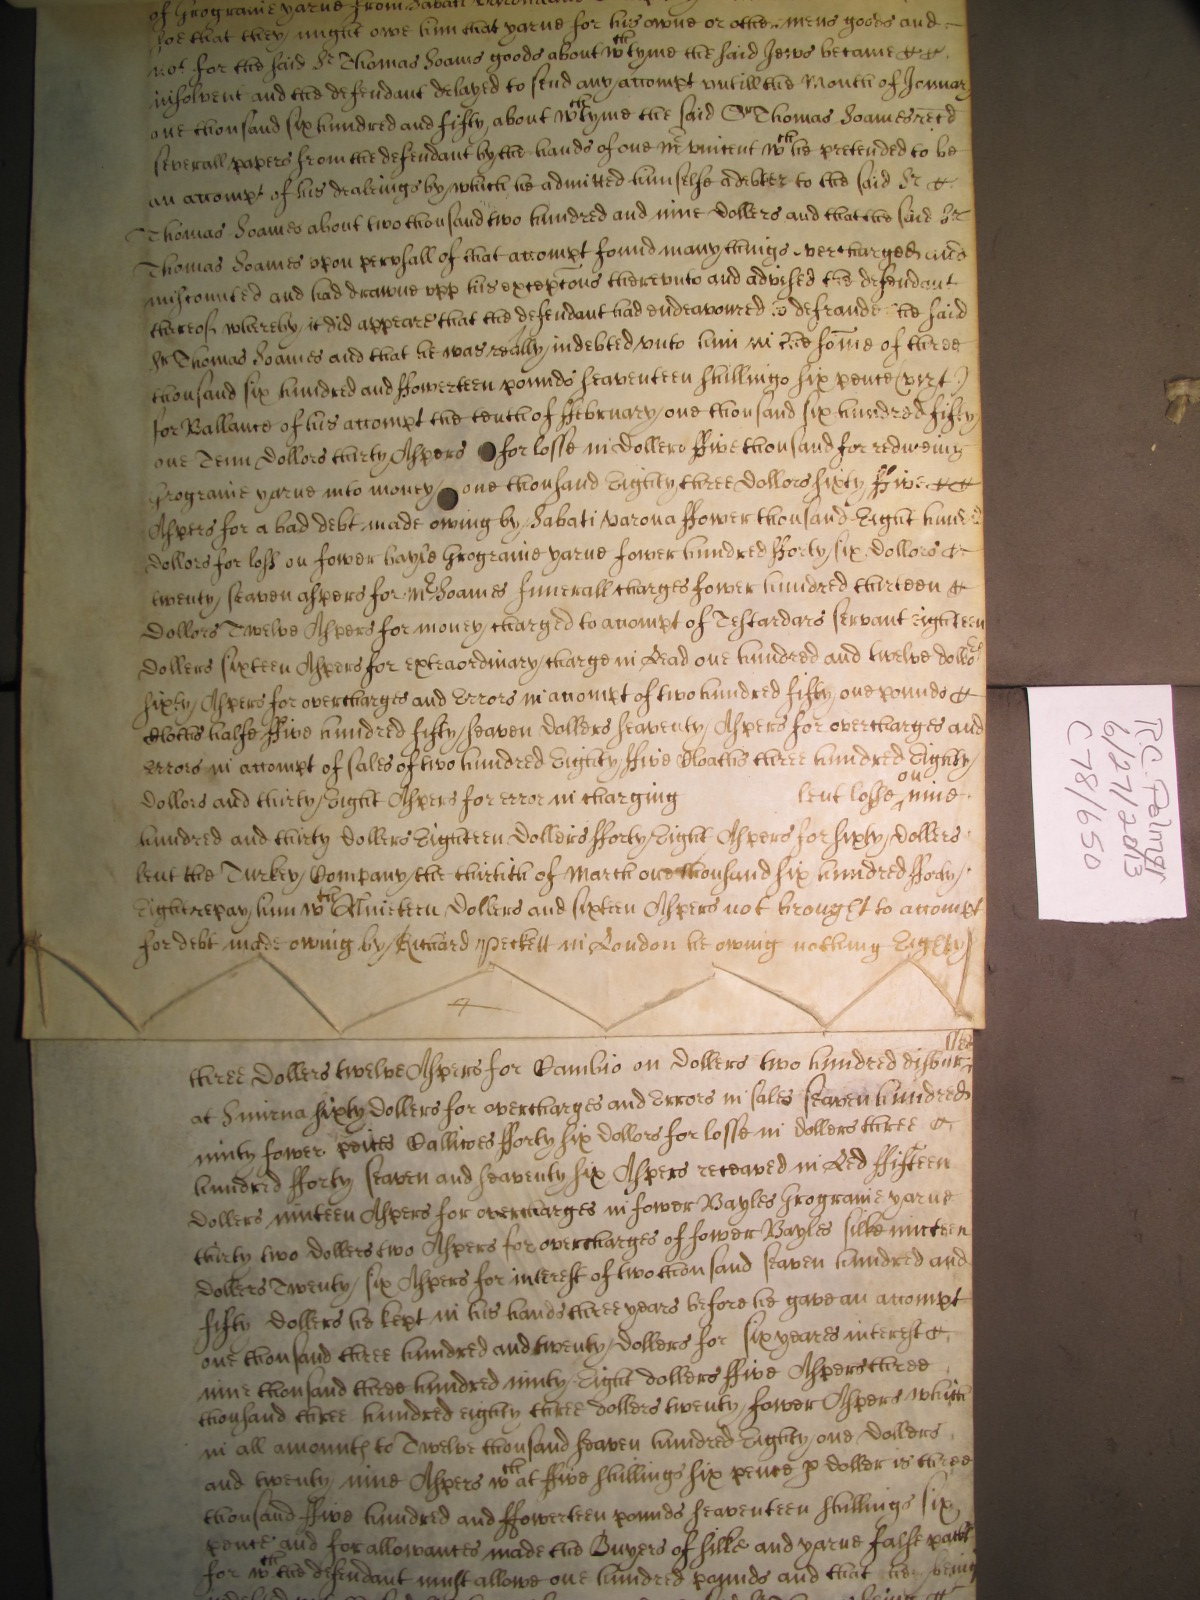 of Grograine yarne from Sabati
soe that they might owe him that yarne for his owne or other mens goods and
not for the said Sr Thomas Soames goods about wch tyme the said Jews became
insolvent and the defendant delayed to send any accompt untill the Month of January
one thousand six hundred and fifty about wch tyme the said Sr Thomas Soames rec'd
severall papers from the defendant by the hands of one Mr Vincent wch he pretended to be
an accompt of his dealeings by which he admitted himselfe a debter to the said Sr
Thomas Soames about two thousand two hundred and nine Dollers and that the said Sr
Thomas Soames upon perusall of that accompt found many things overcharged and
miscounted and had drawne upp his exceptons thereunto and advised the defendant
thereof whereby it did appeare that the defendant had endeavoured to defraude the said
Sr Thomas Soames and that he was really indebted unto him in the some of three
thousand six hundred and ffowerteen pounds seaventeen shillings six pence (vizt)
for Ballance of his accompt the tenth of ffebruary one thousand six hundred fifty
one Tenn Dollors thirty Aspers for losse in Dollers ffive thousand for reduceing
Grograine yarne into money one thousand Eighty three Dollors sixty ffive
Aspers for a bad debt made owing by Sabati Varona ffower thousand Eight hundred
dollors for loss on fower bayls Grograine yarne fower hundred fforty six Dollors
twenty seaven aspers for Mr Soames funerall charges fower hundred thirteen
Dollors Twelve Aspers for money charged to accompt of Testardars servant Eighteen
Dollers sixteen Aspers for extraordinary charge in Lead one hundred and twelve dollrs
sixty Aspers for overcharges and Errors in accompt of two hundred fifty one pounds
Cloths halfe ffive hundred fifty seaven Dollers seaventy Aspers for overcharges and
Errors in accompt of sales of two hundred Eighty ffive Cloaths three hundred Eighty
dollors and thirty Eight Aspers for error in charging lent losse on nine
hundred and thirty dollers Eighteen Dolleirs fforty Eight Aspers for sixty Dollers
lent the Turkey Company the thirtith of March one thousand six hundred fforty
Eight repay him wch Nineteen Dollers and sixteen Aspers not brought to accompt
for debt made owing by Richard Peckett in London he owing nothing Eighty
4
three Dollers twelve Aspers for Cambio on Dollers two hundred disbursed
at Smirna sixty Dollers for overcharges and Errors in sales seaven hundred
ninty fower peices Callicoes fforty six Dollors for losse in dollers three
hundred fforty seaven and seaventy six Aspers receaved in Led ffifteen
Dollers ninteen Aspers for overcharges in fower Bayles Grograine yarne
thirty two Dollers two Aspers for overcharges of fower Bayles silke ninteen
Dollers Twenty six Aspers for interest of two thousand seaven hundred and
fifty Dollers he kept in his hands three years before he gave an accompt
one thousand three hundred and twenty Dollers for six yeares interest
nine thousand three hundred ninty Eight dollers ffive Aspers three
thousand three hundred eighty three dollers twenty fower Aspers which
in all amounth to Twelve thousand seaven hundred Eighty one Dollers
and twenty nine Aspers wch at ffive shillings six pence p doller is three
thousand ffive hundred and ffowerteen pounds seaventeen shillings six
pence and for allowances made the Buyers of silke and yarne false packt
for wch the defendant must allowe one hundred pounds and that he being
R.C. Palmer
6/27/2013
C78/650